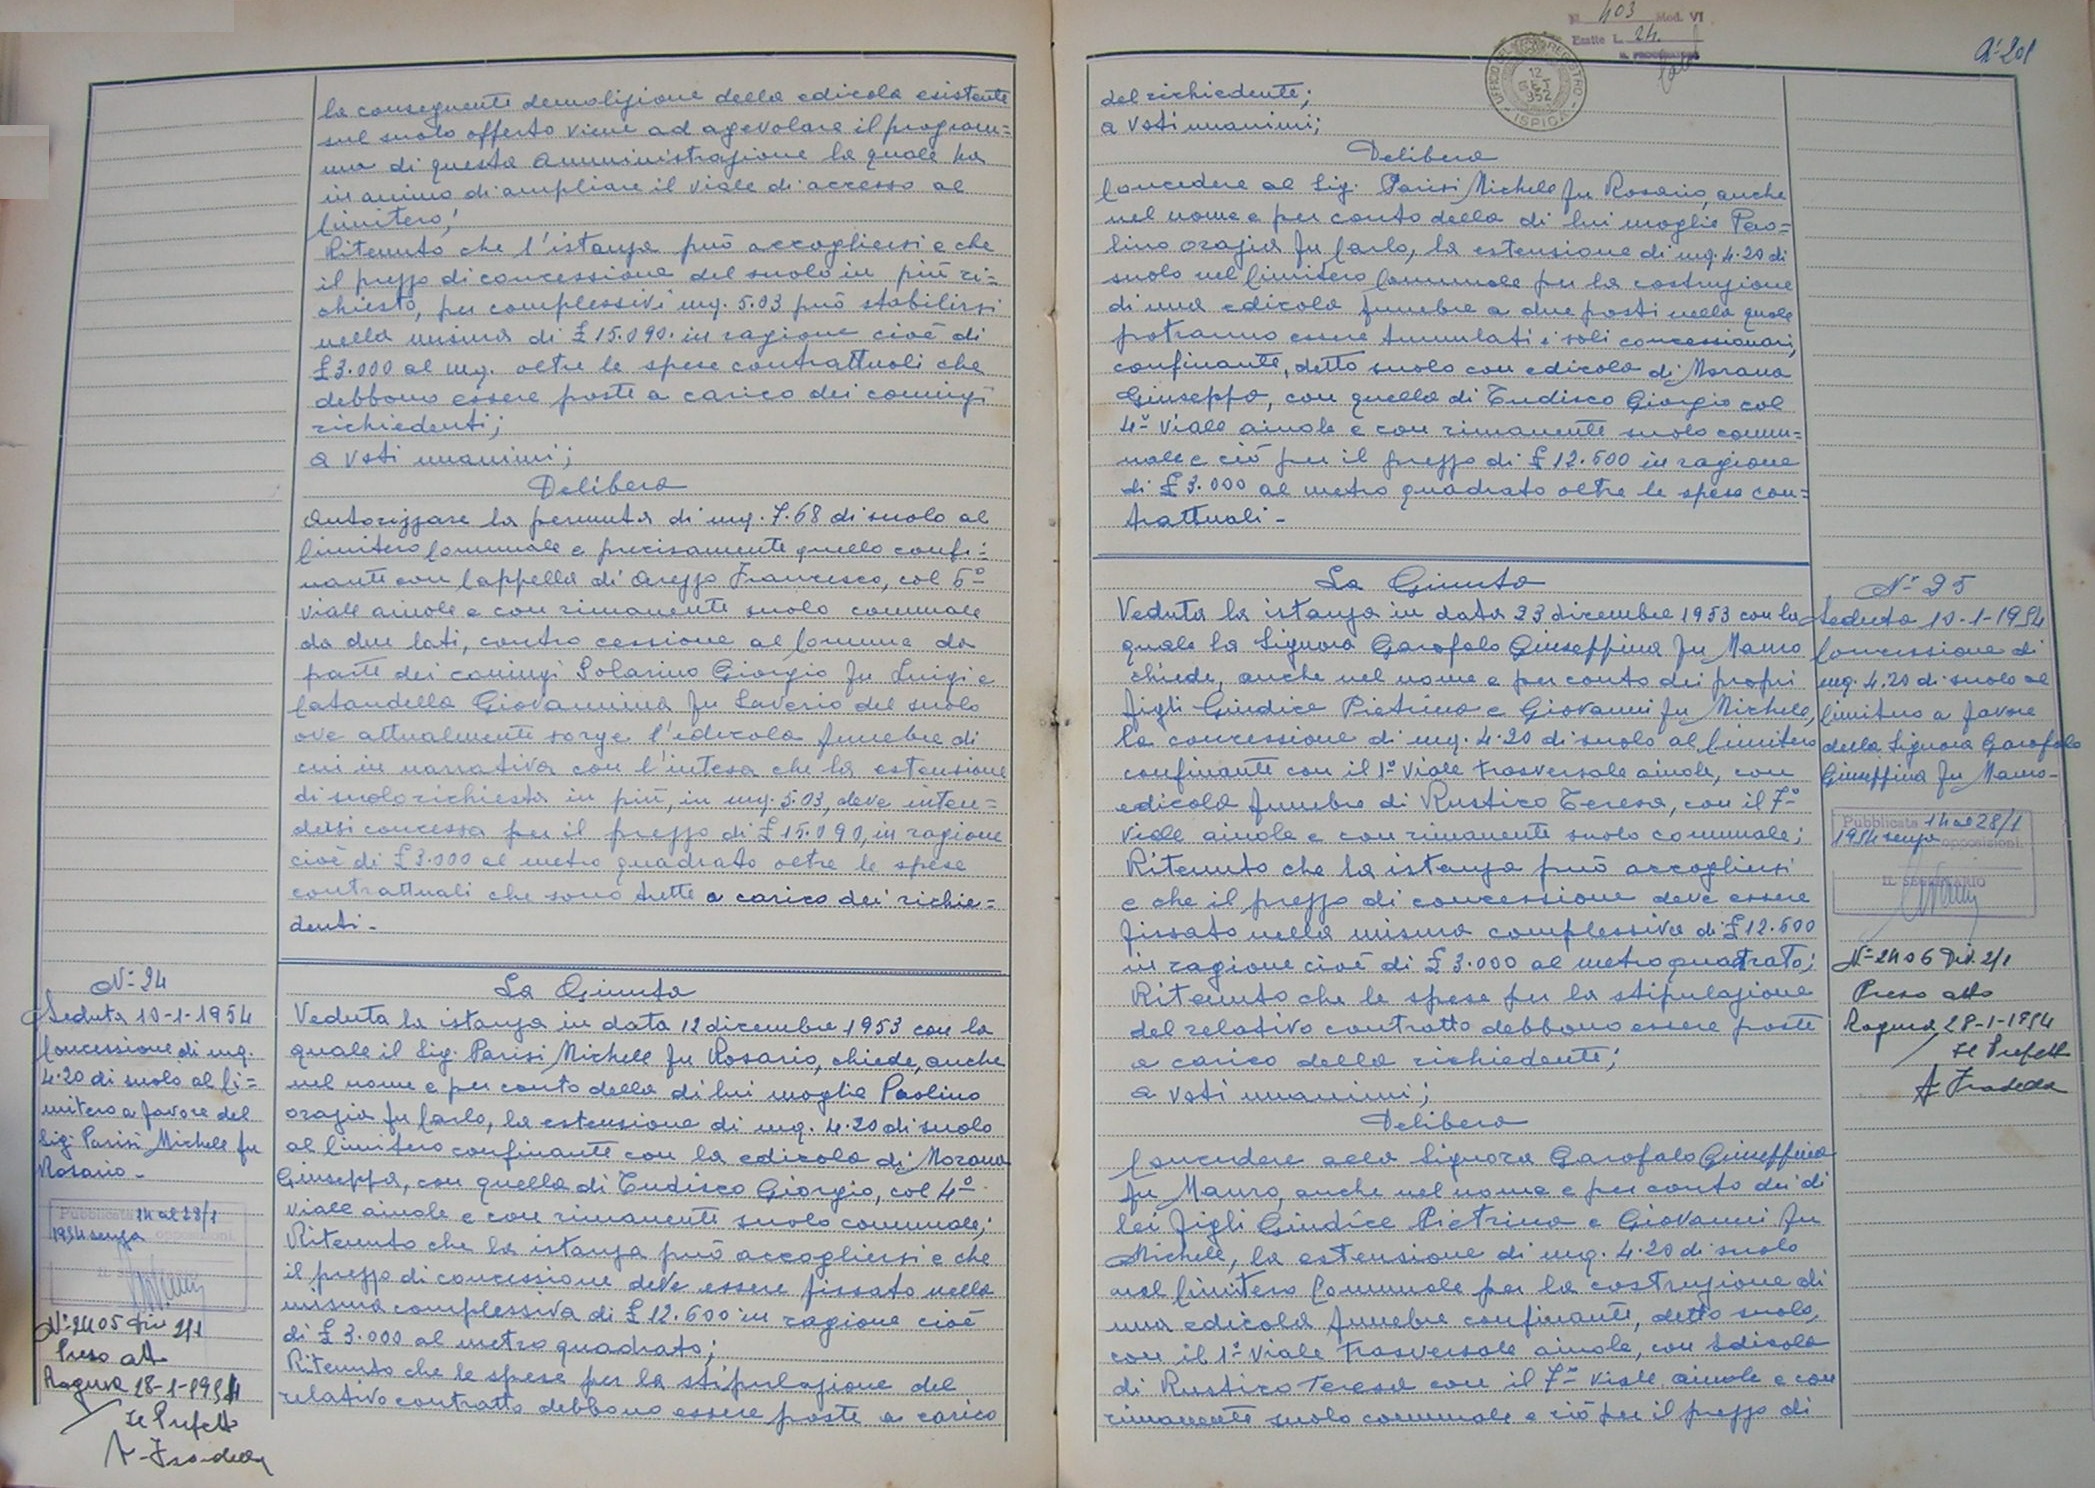 la conseguente demolizione della edicola esistente
sul suolo offerto viene ad agevolare il program=
ma di questa Amministrazione la quale ha
in animo di ampliare il viale di accesso al
Cimitero;
Ritenuto che l'istanza può accogliersi e che
il prezzo di concessione del suolo in più ri=
chiesto, per complessivi mq. 5.03 può stabilirsi
nella misura di £ 15.090. in ragione cioè di
£ 3.000 al mq. oltre le spese contrattuali che
debbono essere poste a carico dei coniugi
richiedenti;
a voti unanimi;
Delibera
Autorizzare la permuta di mq. 7.68 di suolo al
Cimitero Comunale e precisamente quello confi=
nante con Cappella di Arezzo Francesco, col 5º
viale aiuole e con rimanente suolo comunale
da due lati, contro cessione al Comune da
parte dei coniugi Solarino Giorgio fu Luigi e
Catandella Giovannina fu Saverio del suolo
ove attualmente sorge l'edicola funebre di
cui in narrativa con l'intesa che la estensione
di suolo richiesta in più, in mq. 5.03, deve inten=
dersi concessa per il prezzo di £ 15.090, in ragione
cioè di £ 3.000 al metro quadrato oltre le spese
contrattuali che sono tutte a carico dei richie=
denti -
Nº 24
Seduta 10-1-1954
Concessione di mq.
4.20 di suolo al Ci=
mitero a favore del
Sig. Parisi Michele fu
Rosario -
Pubblicata 14 al 28/1
1954 senza opposizioni
Nº 2405 Div 2/1
Preso atto
Ragusa 28-1-1954
Il Prefetto
La Giunta
Veduta la istanza in data 12 dicembre 1953 con la
quale il Sig. Parisi Michele fu Rosario, chiede, anche
nel nome e per conto della di lui moglie Paolino
Orazia fu Carlo, la estensione di mq. 4.20 di suolo
al Cimitero confinante con la edicola di Morana
Giuseppa, con quella di Tudisco Giorgio, col 4º
viale aiuole e con rimanente suolo comunale;
Ritenuto che la istanza può accogliersi e che
il prezzo di concessione deve essere fissato nella
misura complessiva di £ 12.600 in ragione cioè
di £ 3.000 al metro quadrato;
Ritenuto che le spese per la stipulazione del
relativo contratto debbono essere poste a carico
N. 403 Mod. VI
Esatte L. 24.
UFFICIO DEL REGISTRO
ISPICA
del richiedente;
a voti unanimi;
Delibera
Concedere al Sig. Parisi Michele fu Rosario, anche
nel nome e per conto della di lui moglie Pao=
lino Orazia fu Carlo, la estensione di mq. 4.20 di
suolo nel Cimitero Comunale per la costruzione
di una edicola funebre a due posti nella quale
potranno essere tumulati i soli concessionari,
confinante, detto suolo con edicola di Morana
Giuseppa, con quella di Tudisco Giorgio col
4º viale aiuole e con rimanente suolo comu=
nale e ciò per il prezzo di £ 12.600 in ragione
di £ 3.000 al metro quadrato oltre le spese con=
trattuali -
La Giunta
Veduta la istanza in data 23 dicembre 1953 con la
quale la Signora Garofalo Giuseppina fu Mauro
chiede, anche nel nome e per conto dei propri
figli Giudice Pietrina e Giovanni fu Michele,
la concessione di mq. 4.20 di suolo al Cimitero
confinante con il 1º viale trasversale aiuole, con
edicola funebre di Rustico Teresa, con il 7º
viale aiuole e con rimanente suolo comunale;
Ritenuto che la istanza può accogliersi
e che il prezzo di concessione deve essere
fissato nella misura complessiva di £ 12.600
in ragione cioè di £ 3.000 al metro quadrato;
Ritenuto che le spese per la stipulazione
del relativo contratto debbono essere poste
a carico della richiedente;
a voti unanimi;
Delibera
Concedere alla Signora Garofalo Giuseppina
fu Mauro, anche nel nome e per conto dei di
lei figli Giudice Pietrina e Giovanni fu
Michele, la estensione di mq. 4.20 di suolo
nel Cimitero Comunale per la costruzione di
una edicola funebre confinante, detto suolo,
con il 1º viale trasversale aiuole, con edicola
di Rustico Teresa con il 7º viale aiuole e con
rimanente suolo comunale e ciò per il prezzo di
Nº 25
Seduta 10-1-1954
Concessione di
mq. 4.20 di suolo al
Cimitero a favore
della Signora Garofalo
Giuseppina fu Mauro -
Pubblicata 14 al 28/1
1954 senza opposizioni.
IL SEGRETARIO
Nº 2406 Div. 2/1
Preso atto
Ragusa 28-1-1954
Il Prefetto